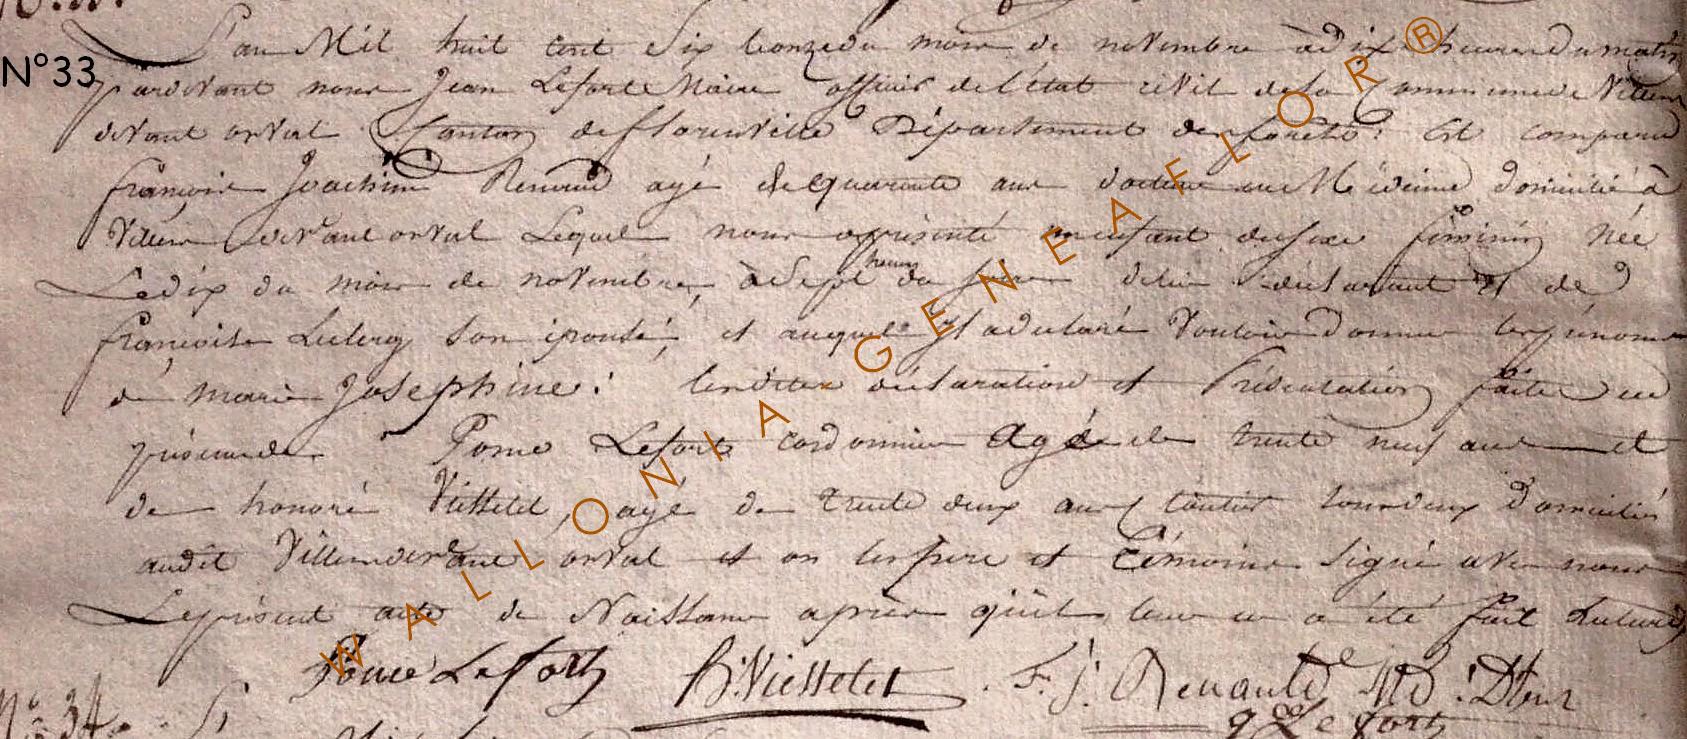 N°33
L'an Mil huit cent Six le onze du mois de novembre à dix heures du matin
pardevant nous Jean Lefort Maire officier de l'état civil de la Commune de Villers
devant orval Canton de florenville Département des forêts: Est comparu
françois Joachim Renauld agé de quarante ans docteur en Médecine domicilié à
Villers devant orval Lequel nous a présenté un enfant du sexe féminin née
Le dix du mois de novembre, à Sept heures du soir de lui déclarant et de
françoise Leclerq Son épouse, et auquel Il a déclaré Vouloir donner les prénoms
de marie Josephine: lesdites déclaration et Présentation faite en
présence de Ponce Lefort cordonnier Agé de trente neuf ans et
de honoré Viesselet, agé de trente deux ans tous deux domiciliés
audit Villers devant orval et on les pere et témoins Signé avec nous
Le présent acte de Naissance après qu'il leur en a été fait Lecture
Ponce Lefort H. Viesselet F. J. Renauld Md. Dteur
J Lefort
N° 34
WALLONIA GENEAFLOR®